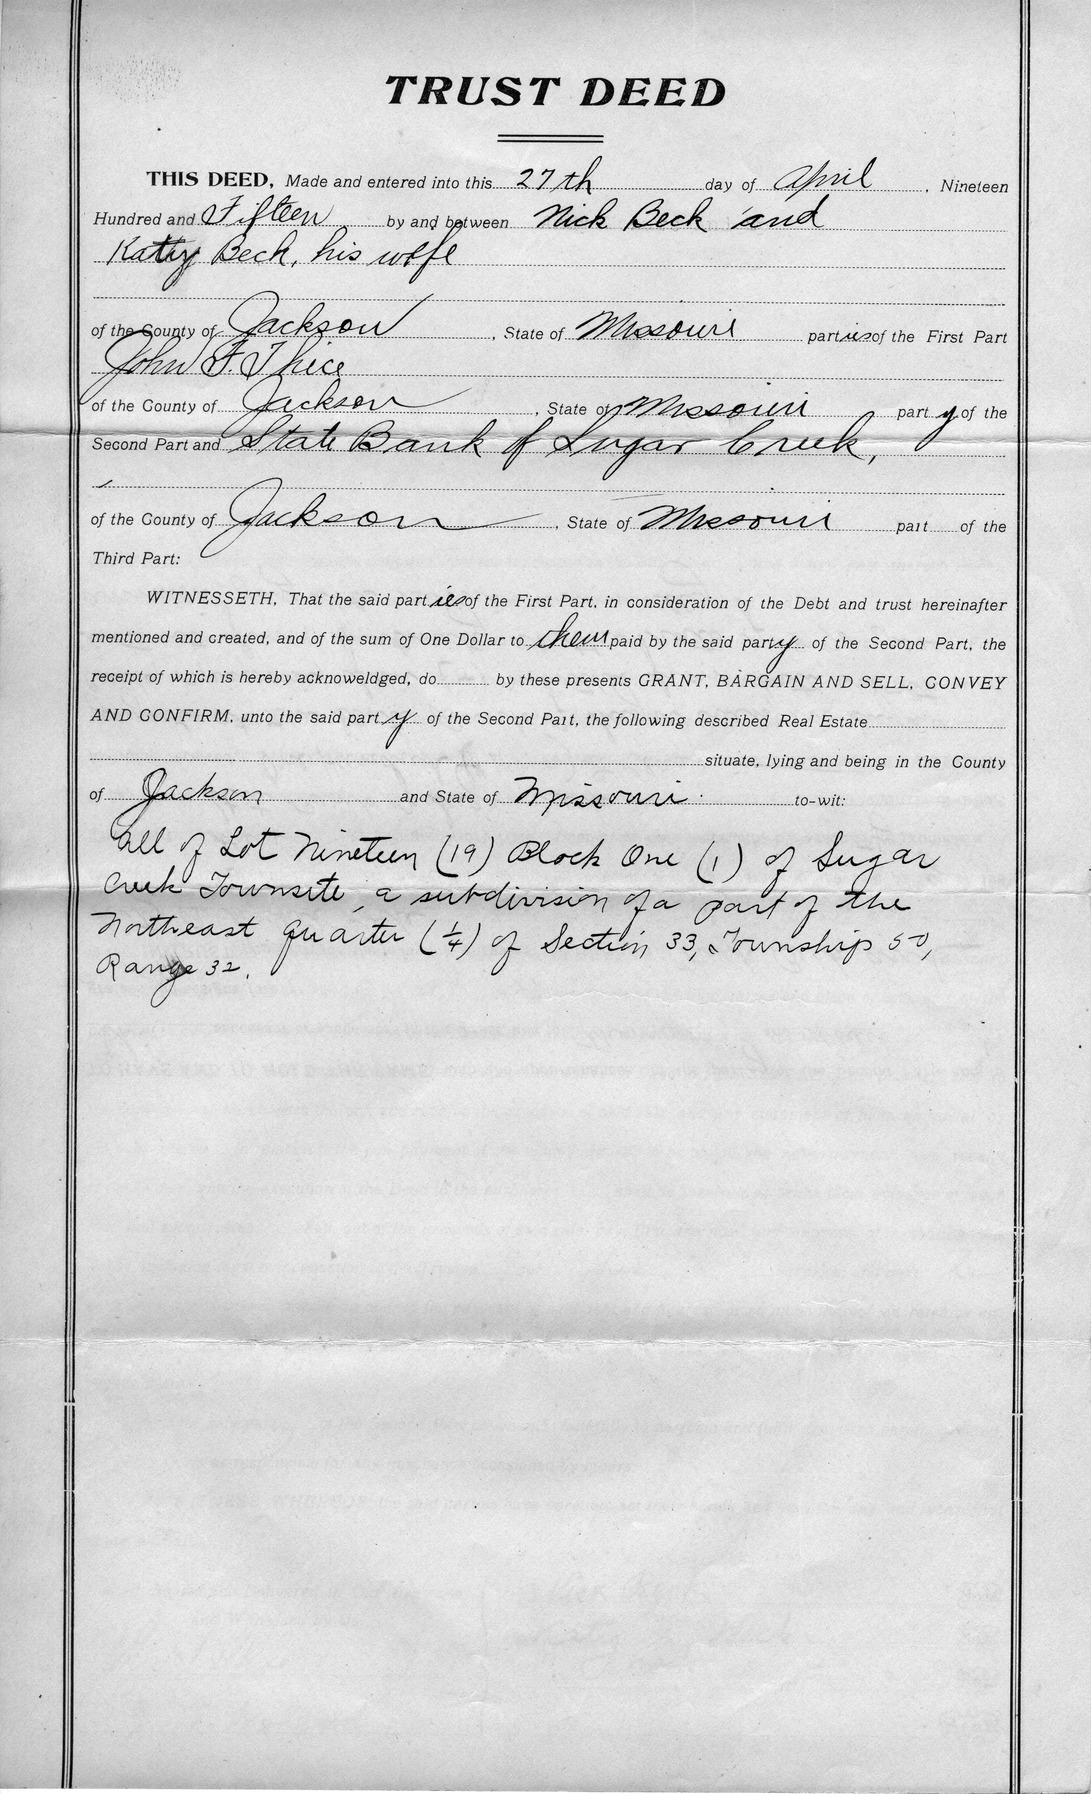 TRUST DEED
THIS DEED, Made and entered into this 27th day of April, Nineteen
Hundred and Fifteen by and between Nick Beck and
Katty Beck, his wife
of the County of Jackson, State of Missouri parties of the First Part
John F. Thice
of the County of Jackson, State of Missouri party of the
Second Part and State Bank of Sugar Creek,
of the County of Jackson, State of Missouri part of the
Third Part:
WITNESSETH, That the said parties of the First Part, in consideration of the Debt and trust hereinafter
mentioned and created, and of the sum of One Dollar to them paid by the said party of the Second Part, the
receipt of which is hereby acknoweldged, do by these presents GRANT, BARGAIN AND SELL, CONVEY
AND CONFIRM, unto the said party of the Second Part, the following described Real Estate
situate, lying and being in the County
of Jackson and State of Missouri to-wit:
all of Lot Nineteen (19) Block One (1) of Sugar
Creek Townsite, a subdivision of a part of the
Northeast quarter (1/4) of Section 33, Township 50,
Range 32.